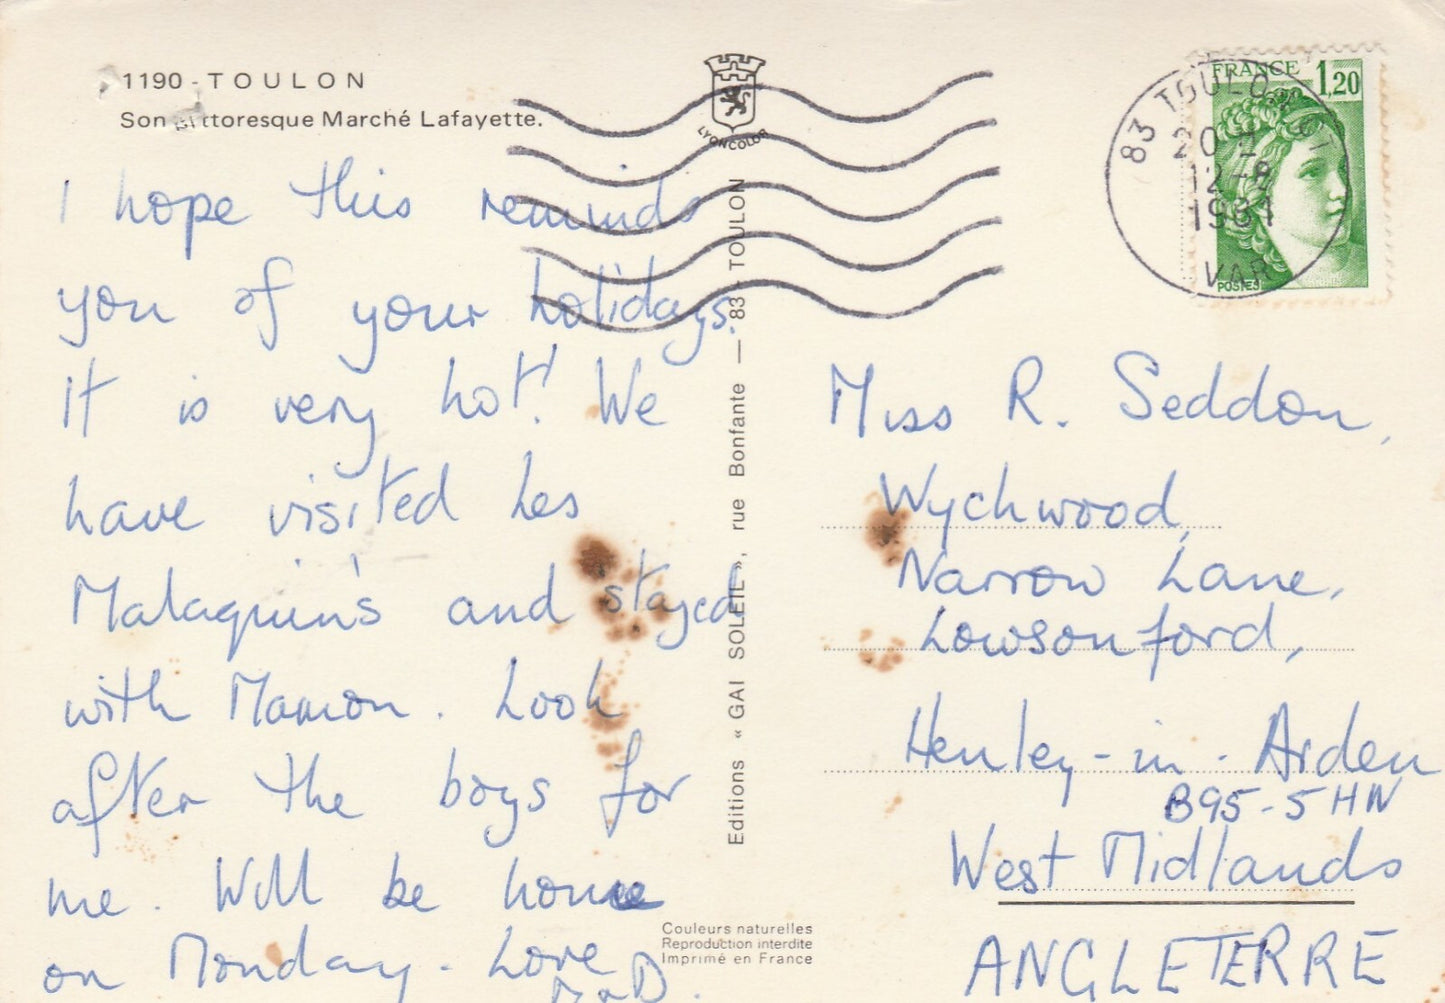 1190 - TOULON
Son pittoresque Marché Lafayette.
I hope this reminds
you of your holidays.
It is very hot! We
have visited Les
Malaquin's and stayed
with Mamon. Look
after the boys for
me. Will be home
on Monday. Love
LYONCOLOR
Editions « GAI SOLEIL », rue Bonfante — 83 - TOULON
Couleurs naturelles
Reproduction interdite
Imprimé en France
FRANCE 1,20
POSTES
83 TOULON
12-
1981
VAR
Miss R. Seddon,
Wychwood,
Narrow Lane,
Lowsonford,
Henley-in-Arden
B95-5HN
West Midlands
ANGLETERRE